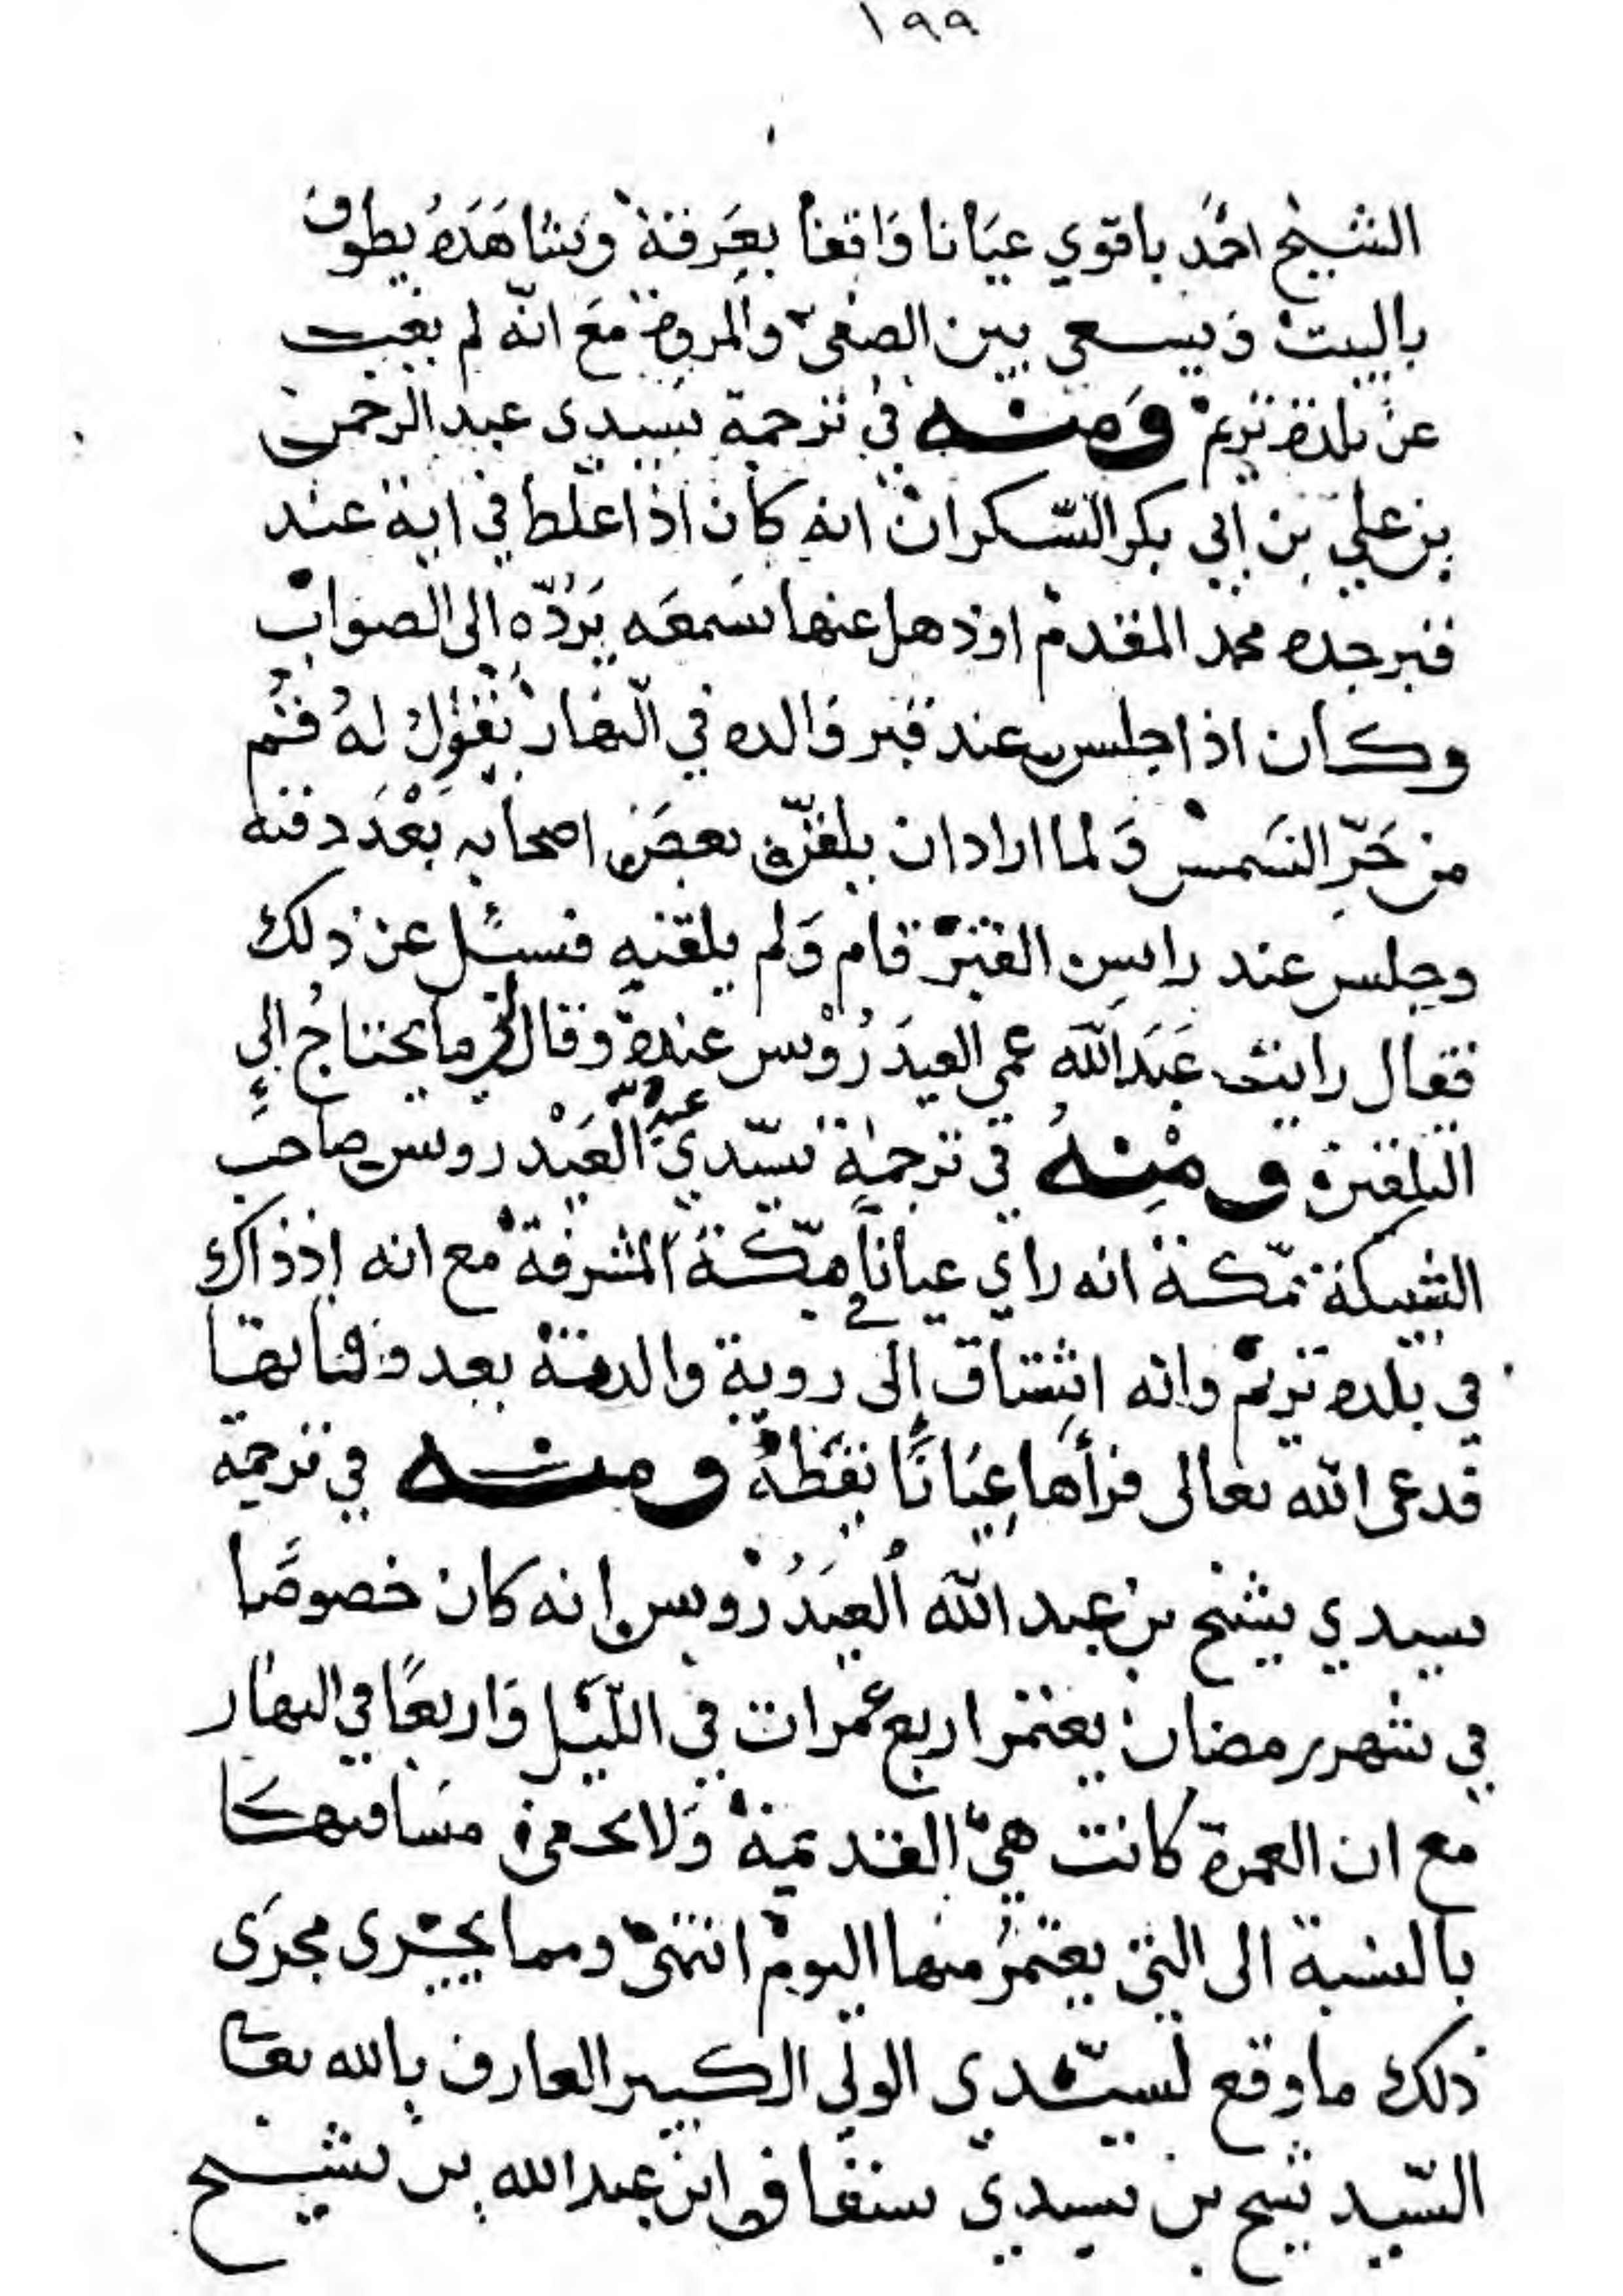 ١٩٩
الشيخ احمَد باقوي عيَانا وَاقفا بعَرفة وَشاهَدَهُ يطوف
بالبيت وَيسعى بين الصفىٰ والمروة مَعَ انّه لم يغب
عن بلده تريم وَمنه في ترجمة سيدى عبد الرحمن
بن علي بن ابي بكر السّكران انه كان اذا غلط في اية عند
قبر جده محمد المقدم او ذهل عنها سَمعَه يَرُدّه الى الصواب
وكان اذا جلس عند قبر وَالده في النهار يَقول لهُ قم
من حَرّ الشمس وَلما اراد ان يلقن بعض اصحابه بَعْدَ دفنه
وجلس عند راس القبر قام وَلم يلقنه فسئل عن ذلك
فقال رايت عَبَدالله عمي العيدَرُوْس عنده وَقال لي ما يحتاج الى
التلقين ومنهُ في ترجمة سيّدي عبدالله العَيْدروس صاحب
الشبيكة بمكة انه راي عياناً في مكة المشرفة مع انه اذذاك
في بلده تريم وانه اشتاق الى روية والدته بعد وفاتها
فدعى الله تعالى فرأها عِيَانًا يقظة ومنه في ترجمة
سيدي شيخ بن عبد الله العيَدَرُوس انه كان خصوصًا
في شهر رمضان يعتمر اربع عمرات في الليَل وَاربعًا في النهار
مع ان العمرة كانت هي القديمة وَلا يخفى مسَافتها
بالنسبة الى التي يعتمرُ منها اليوم انتهى ومما يجرى مجرَى
ذلك ما وقع لسيّدي الولي الكبير العارف بالله تعا
السّيد شيخ بن سيدي سقاف ابن عبدالله بن شيخ